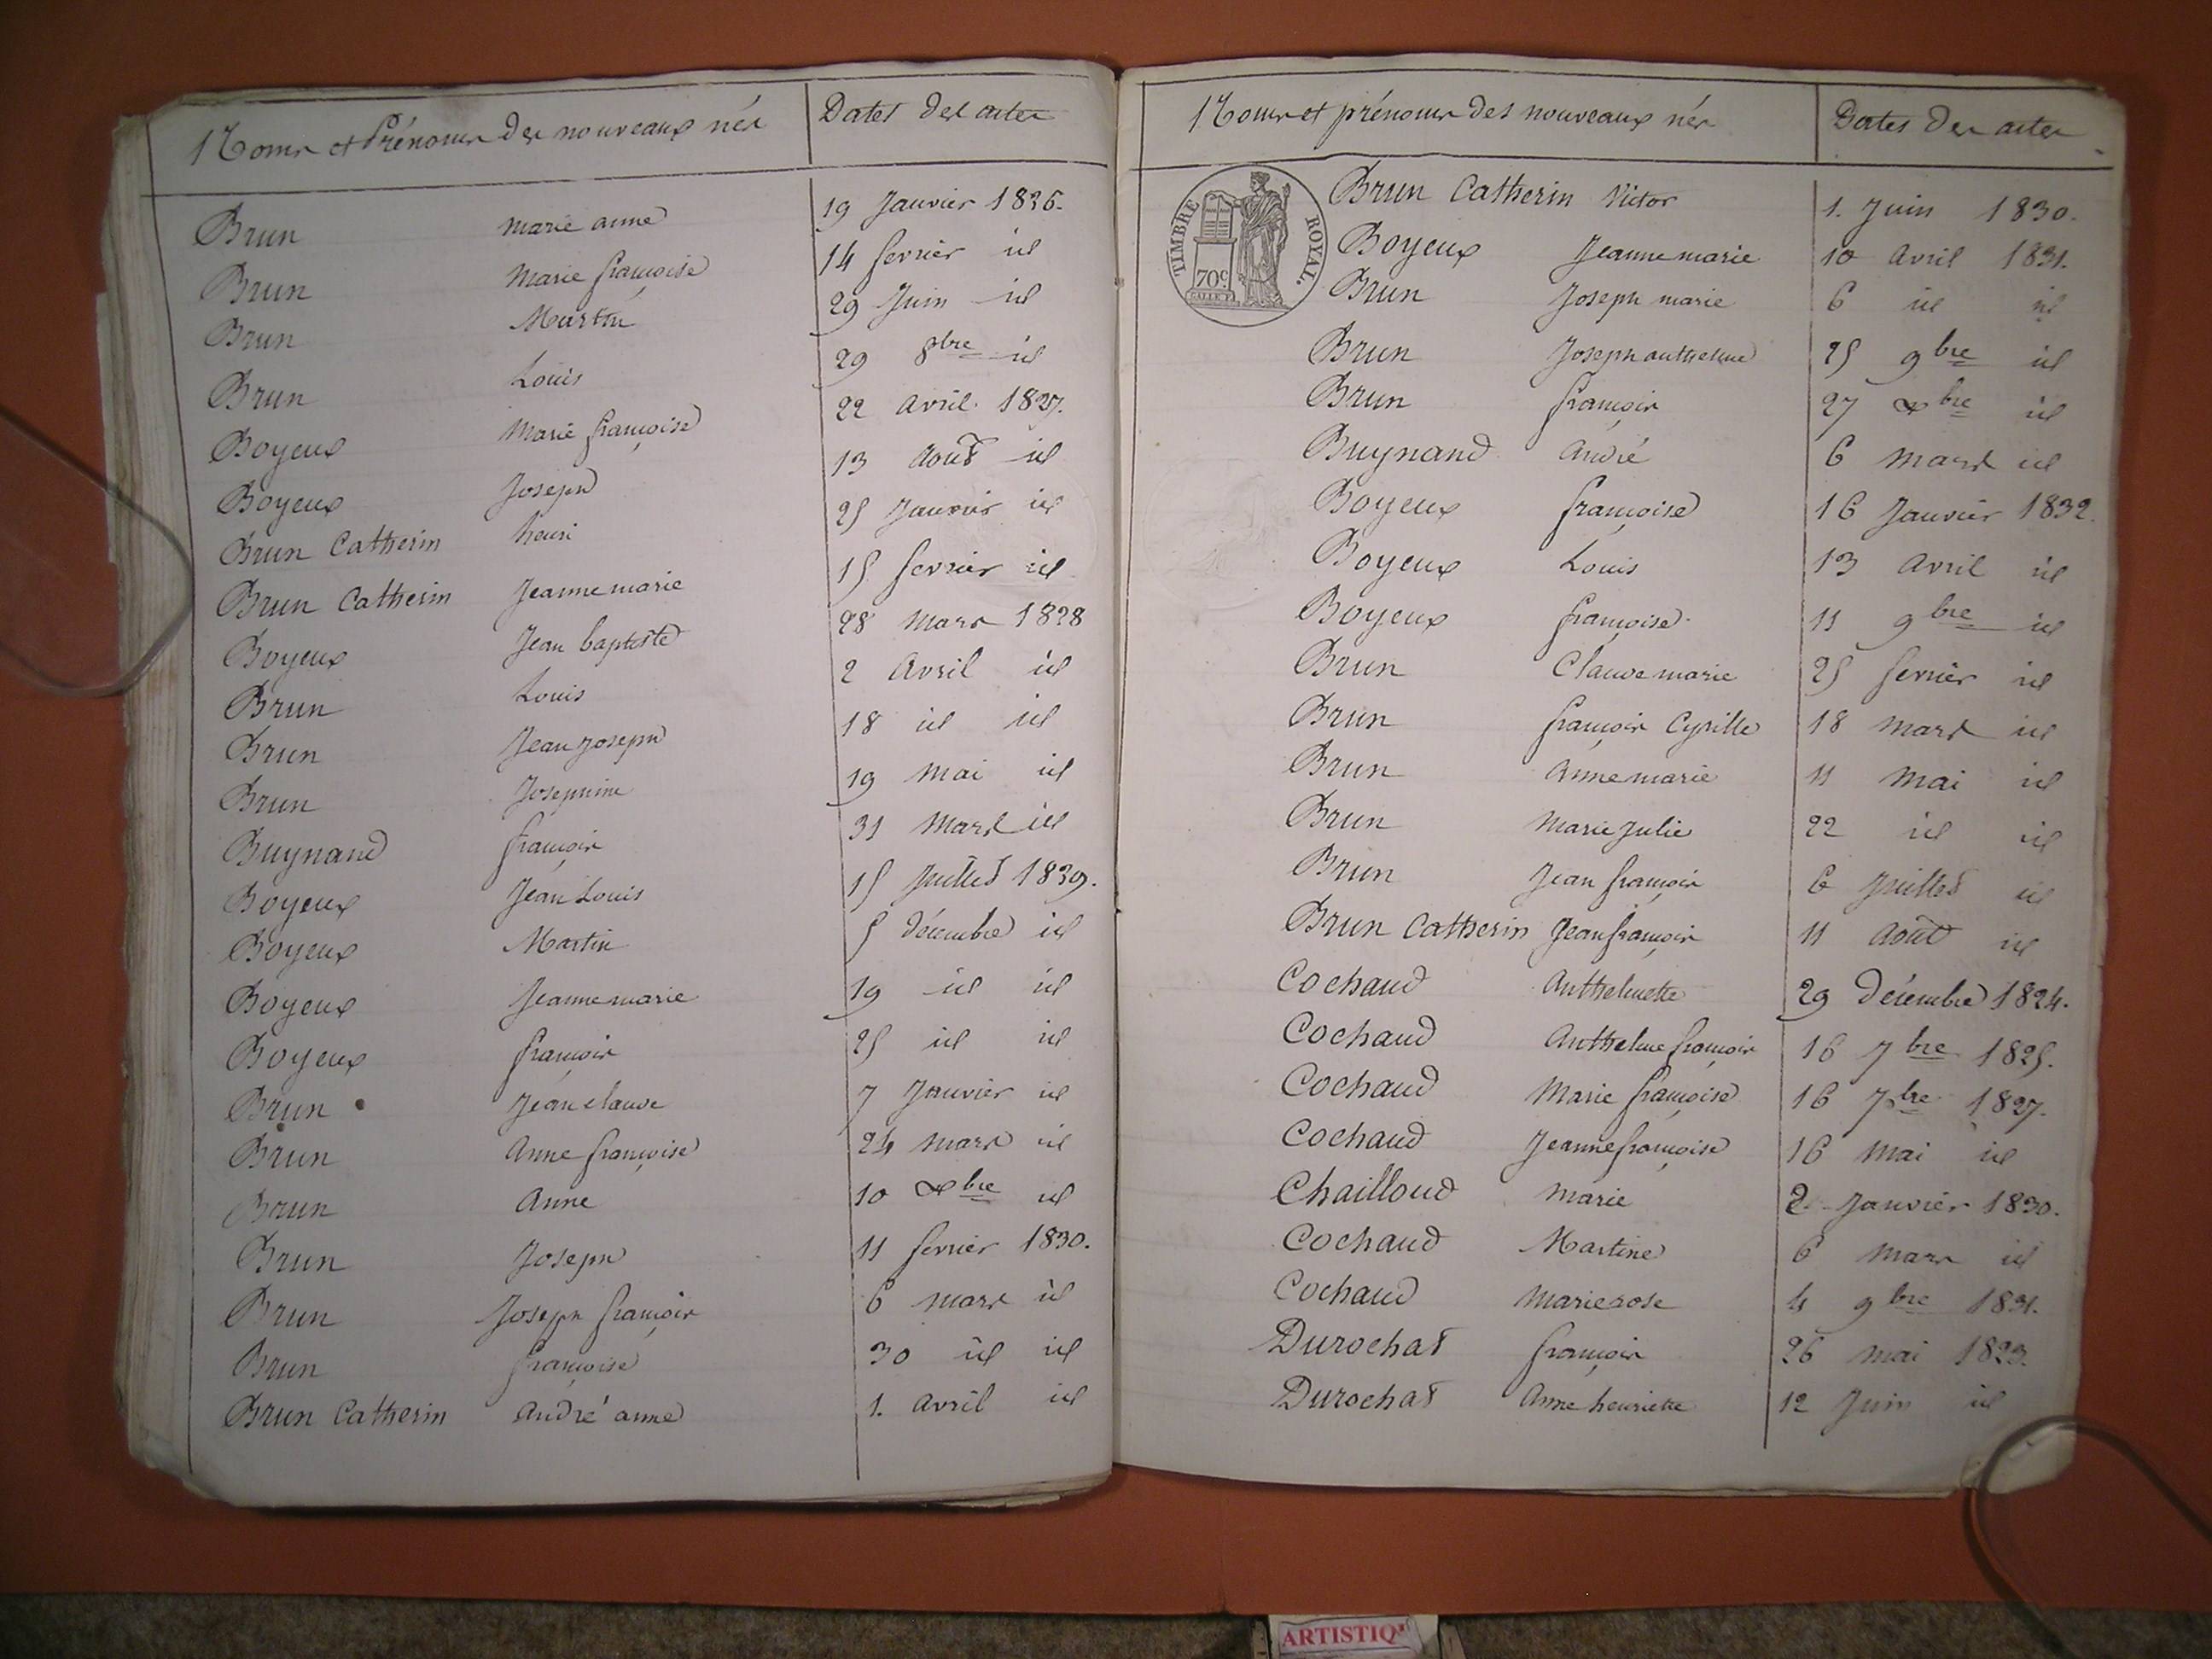 Noms et Prénoms des nouveaux nés Dates des actes
Brun marie anne 19 Janvier 1826.
Brun Marie françoise 14 fevrier id
Brun Martin 29 Juin id
Brun Louis 29 8bre id
Boyeux Marie françoise 22 avril 1827.
Boyeux Joseph 13 Août id
Brun Catherin henri 25 Janvier id
Brun Catherin Jeanne marie 15 fevrier id
Boyeux Jean baptiste 28 Mars 1828
Brun Louis 2 Avril id
Brun Jean Joseph 18 id id
Brun Josephine 19 Mai id
Buynand françois 31 Mars id
Boyeux Jean Louis 15 Juillet 1829.
Boyeux Martin 5 décembre id
Boyeux Jeanne marie 19 id id
Boyeux françois 25 id id
Brun Jean claude 7 Janvier id
Brun Anne françoise 24 mars id
Brun Anne 10 Xbre id
Brun Joseph 11 fevrier 1830.
Brun Joseph françois 6 mars id
Brun françoise 30 id id
Brun Catherin André anne 1. avril id
Noms et prénoms des nouveaux nés Dates des actes
TIMBRE ROYAL.
70c
Brun Catherin Victor 1. Juin 1830.
Boyeux Jeanne marie 10 Avril 1831.
Brun Joseph marie 6 id id
Brun Joseph anthelme 25 9bre id
Brun françois 27 Xbre id
Buynand André 6 Mars id
Boyeux françoise 16 Janvier 1832.
Boyeux Louis 13 Avril id
Boyeux françoise 11 9bre id
Brun Claude marie 25 fevrier id
Brun françois Cyrille 18 Mars id
Brun Anne marie 11 Mai id
Brun Marie Julie 22 id id
Brun Jean françois 6 Juillet id
Brun Catherin Jean françois 11 Août id
Cochaud Anthelmette 29 Décembre 1824.
Cochaud Anthelme françois 16 7bre 1825.
Cochaud Marie françoise 16 7bre 1827.
Cochaud Jeanne françoise 16 Mai id
Chailloud Marie 2 Janvier 1830.
Cochaud Martine 6 Mars id
Cochaud Marie rose 4 9bre 1831.
Durochat françois 26 Mai 1823.
Durochat Anne henriette 12 Juin id
ARTISTIQ